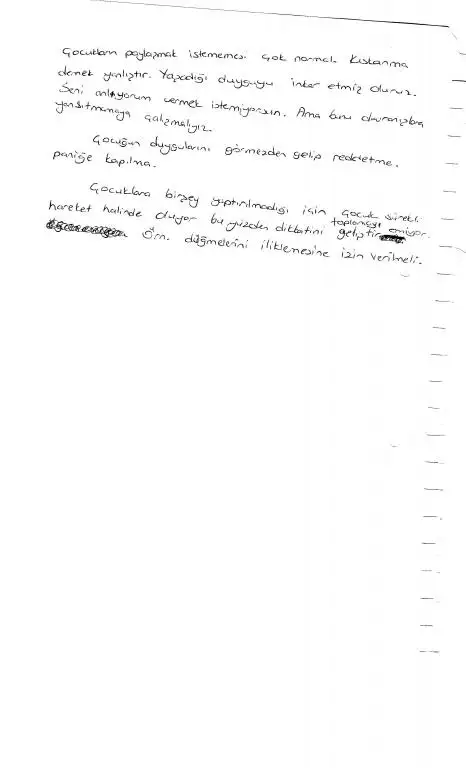 Çocukların paylaşmak istememesi çok normal. Kıskanma
demek yanlıştır. Yaşadığı duyguyu inkar etmiş oluruz.
Seni anlıyorum vermek istemiyorsun. Ama bunu davranışlara
yansıtmamaya çalışmalıyız.
Çocuğun duygularını görmezden gelip reddetme.
paniğe kapılma.
Çocuklara birşey yaptırılmadığı için çocuk sürekli
hareket halinde oluyor bu yüzden dikkatini toplamayı geliştiremiyor.
Örn. düğmelerini iliklemesine izin verilmeli.